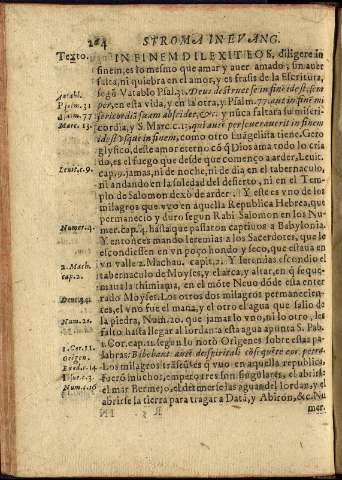 264 STROMA IN EVANG.
Texto. IN FINEM DILEXIT EOS, diligere in
finem, es lo mesmo que amar y auer amado, sin auer
falta, ni quiebra en el amor, y es frasis de la Escritura,
Vatabl. segũ Vatablo Psal. 31. Deus destruet se in finẽ id est sem
Psalm. 31 per, en esta vida, y en la otra, y Psalm. 77. aut in finẽ mi
Psalm. 77 sericordiã suam abscidet, &c. y nunca faltara su miseri-
Marc. 13. cordia, y S. Marc. c. 13. qui autẽ perseuerauerit in finem
id est vsque in finem, como otro Euãgelista tiene. Gero
glyfico, deste amor eterno cõ q̃ Dios ama todo lo cria
do, es el fuego que desde que començo a arder, Leuit.
Leuit. c. 9. cap. 9. jamas, ni de noche, ni de dia en el tabernaculo,
ni andando en la soledad del desierto, ni en el Tem
plo de Salomon dexò de arder. Y este es vno de los
milagros que vuo en aquella Republica Hebrea, que
permanecio y duro segun Rabi Salomon en los Nu-
Numer. 4. mer. cap. 4. hasta que passaron captiuos a Babylonia.
Y entonces mando Ieremias a los Sacerdotes, que le
escondiessen en vn poço hondo y seco, que estaua en
2. Mach. vn valle 2. Machau. capit. 2. Y Ieremias escondio el
cap. 2. tabernaculo de Moyses, y el arca, y altar, en q̃ se que-
maua la thimiama, en el mõte Nebo dõde esta enter
Deut. 34. rado Moyses. Los otros dos milagros permanecien-
tes, el vno fue el mana, y el otro el agua que salio de
Num. 20. la piedra, Num. 20. que jamas lo vno, ni lo otro, les
falto hasta llegar al Iordan: a esta agua apunta S. Pab.
1. Cor. 11. 1. Cor. cap. 11. segun lo notò Origenes sobre estas pa-
Origen. labras: Bibebant autẽ de spiritali cõsequẽte eos petra.
Exod. 14 Los milagros trãseũtes q̃ vuo en aquella republica
Iosue. c. 3. fuerõ muchos, empero tres son singulares, el abrirse
Num. c. 16 el mar Bermejo, el detenerse las aguas del Iordan, y el
abrirse la tierra para tragar a Datã, y Abirõn, &c. Nu
mer.